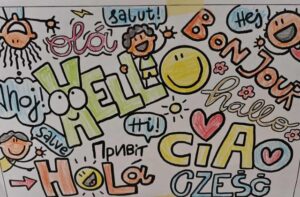 salut!
Hej
olá
BONJOUR
HELLO
Ahoj!
hallo
Salve!
Hi!
CIAO
Привіт
HOLA
CZEŚĆ